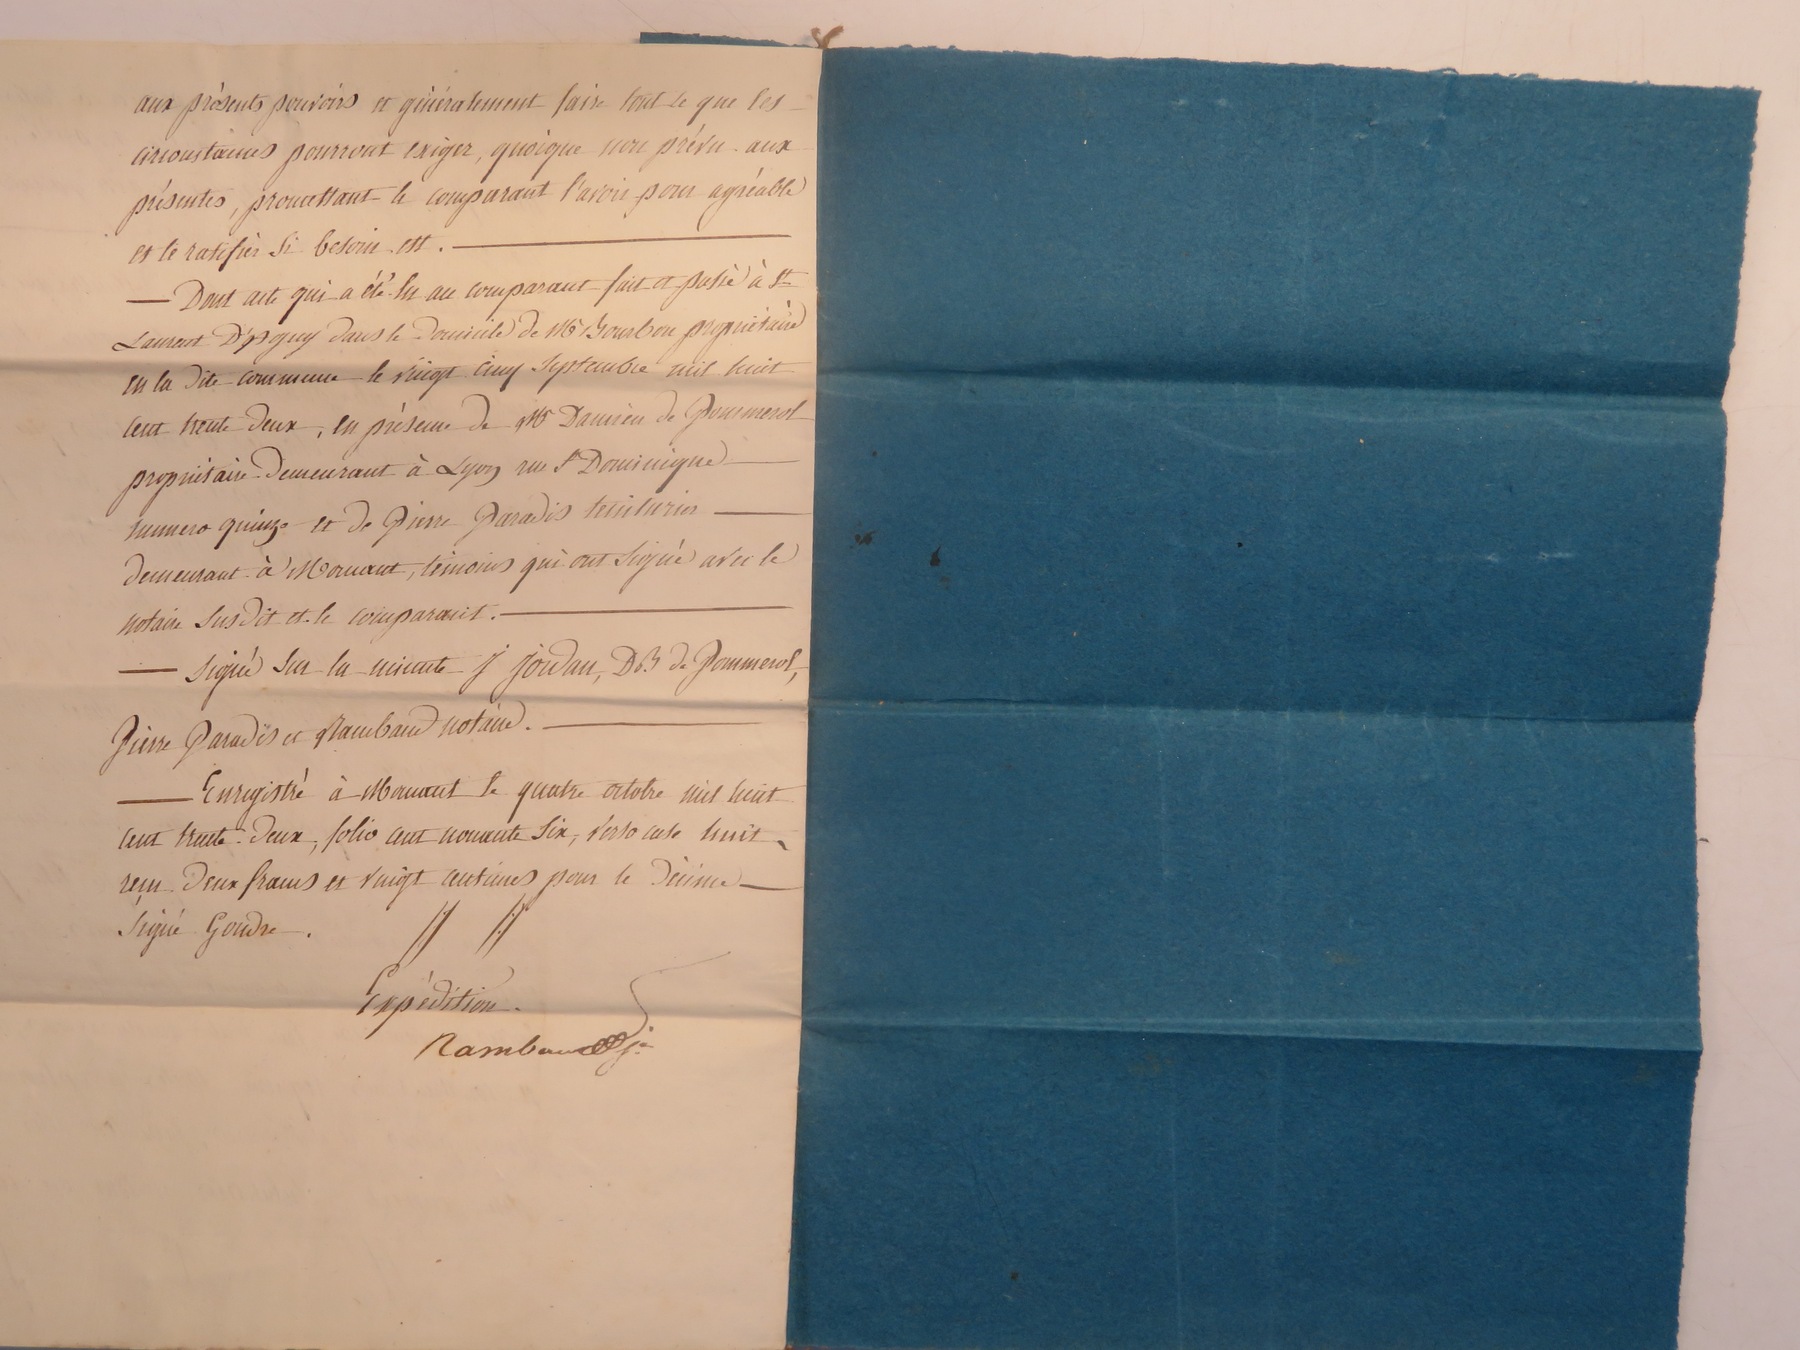 aux présents pouvoirs et généralement faire tout ce que les
circonstances pourront exiger, quoique non prévu aux
présentes, promettant le comparant l'avoir pour agréable
et le ratifier si besoin est.
— Dont acte qui a été lu au comparant fait et passé à St
Laurent D'agny dans le domicile de Mr Bourbon propriétaire
en la dite commune le vingt cinq Septembre mil huit
cent trente deux, en présence de Mr Damien de Pommerol
propriétaire demeurant à Lyon rue St Dominique
numero quinze et de Pierre Paradis teinturier
demeurant à Mornant, témoins qui ont signé avec le
notaire susdit et le comparant.
— Signé sur la minute J Jordan, DB de Pommerol,
Pierre Paradis et Rambaud notaire.
— Enregistré à Mornant le quatre octobre mil huit
cent trente deux, folio cent nonante six, verso case huit
reçu deux francs et vingt centimes pour le décime
Signé Goudre.
Expédition.
Rambaud